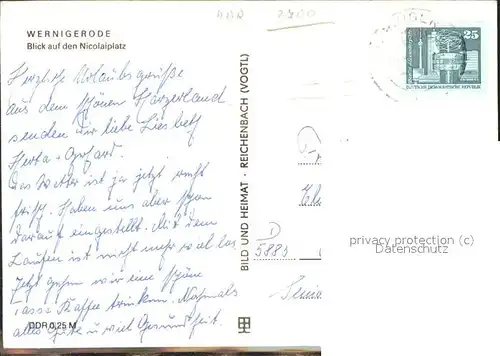 DDR 2700
WERNIGERODE
Blick auf den Nicolaiplatz
25
DEUTSCHE DEMOKRATISCHE REPUBLIK
Herzliche Urlaubsgrüße
aus dem schönen Harzerland
senden Dir liebe Liesbeth
Herta + Gerhard.
Das Wetter ist ja jetzt recht
frisch. Haben uns aber schon
darauf eingestellt. Mit dem
Laufen ist nicht mehr viel los
Jetzt gehen wir eine schöne
Tasse Kaffee trinken. Nochmals
alles Gute u viel Gesundheit.
DDR 0,25 M
BILD UND HEIMAT · REICHENBACH (VOGTL)
D
5883
privacy protection (c)
Datenschutz